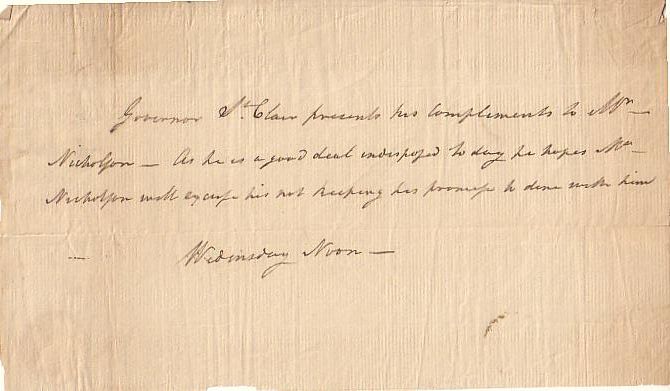 Governor St. Clair presents his compliments to Mr. —
Nicholson — As he is a good deal indisposed to day he hopes Mr.
Nicholson will excuse his not keeping his promise to dine with him
Wednesday Noon —